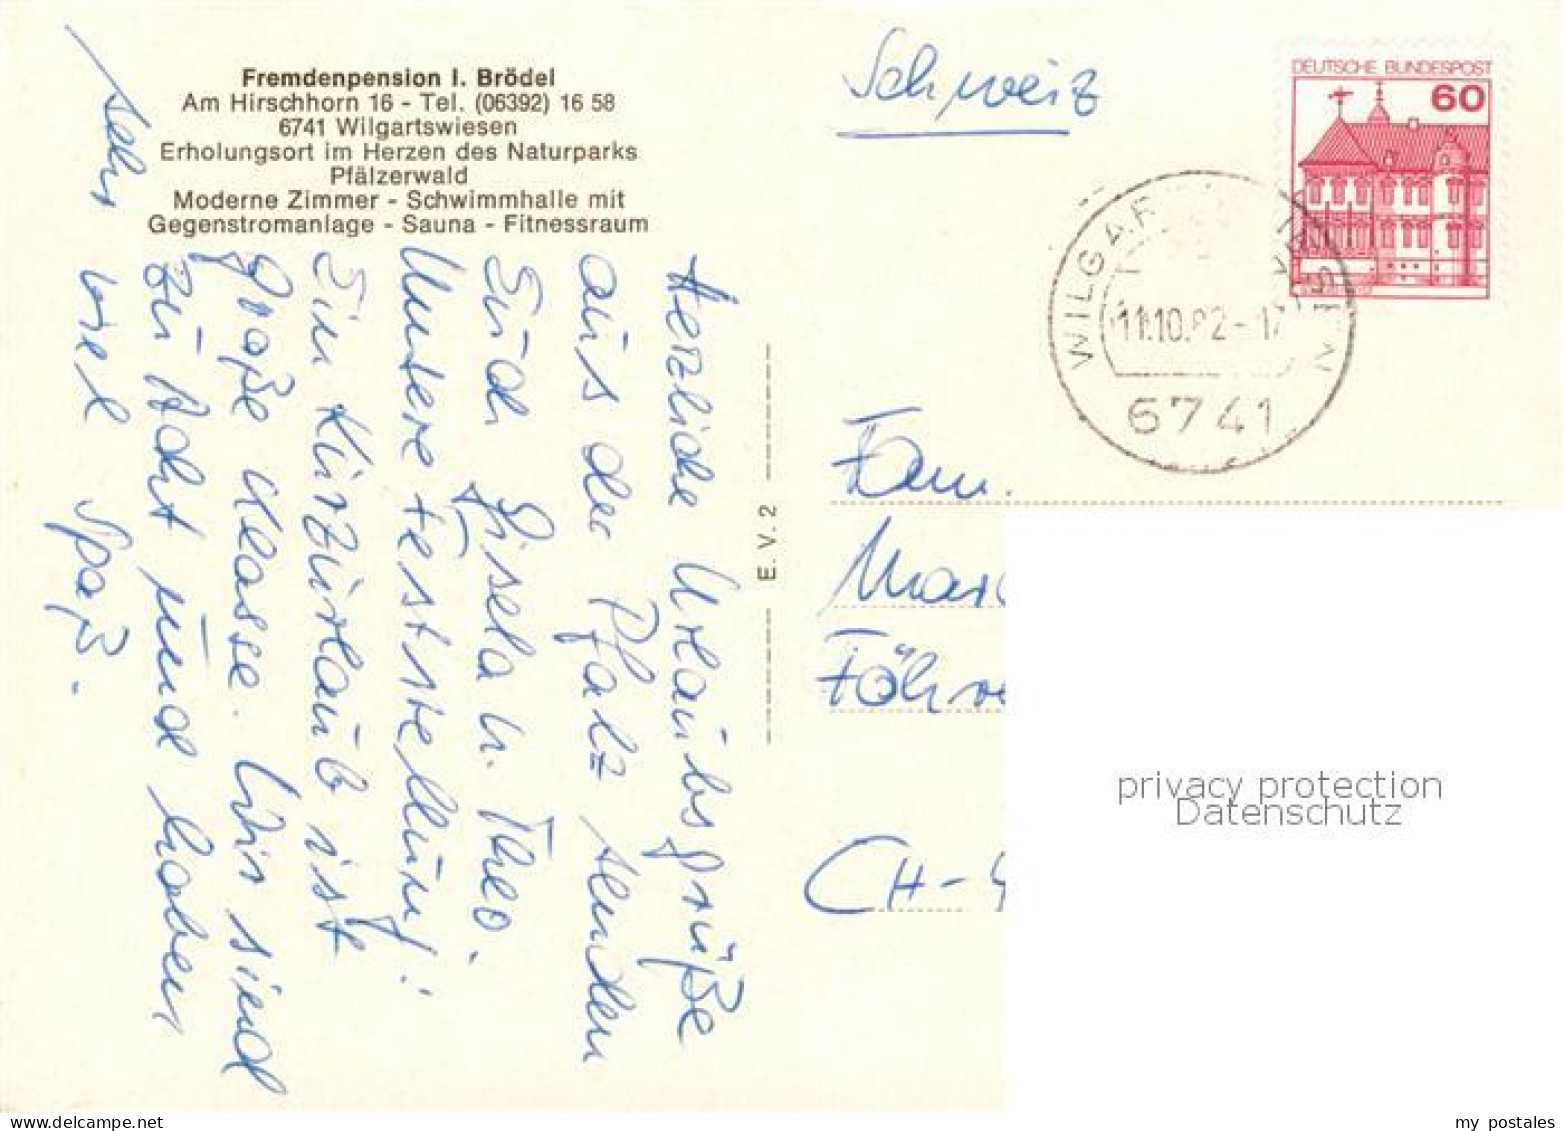 Fremdenpension I. Brödel
Am Hirschhorn 16 - Tel. (06392) 16 58
6741 Wilgartswiesen
Erholungsort im Herzen des Naturparks
Pfälzerwald
Moderne Zimmer - Schwimmhalle mit
Gegenstromanlage - Sauna - Fitnessraum
Herzliche Urlaubsgrüße
aus der Pfalz senden
Euch Gisela u. Theo.
Unsere Feststellung:
Ein Kurzurlaub ist
große Klasse. Wir sind
zu Acht und haben
sehr viel Spaß.
E. V. 2
Schweiz
DEUTSCHE BUNDESPOST
60
11.10.82-17
6741
Fam.
CH-
privacy protection
Datenschutz
my postales